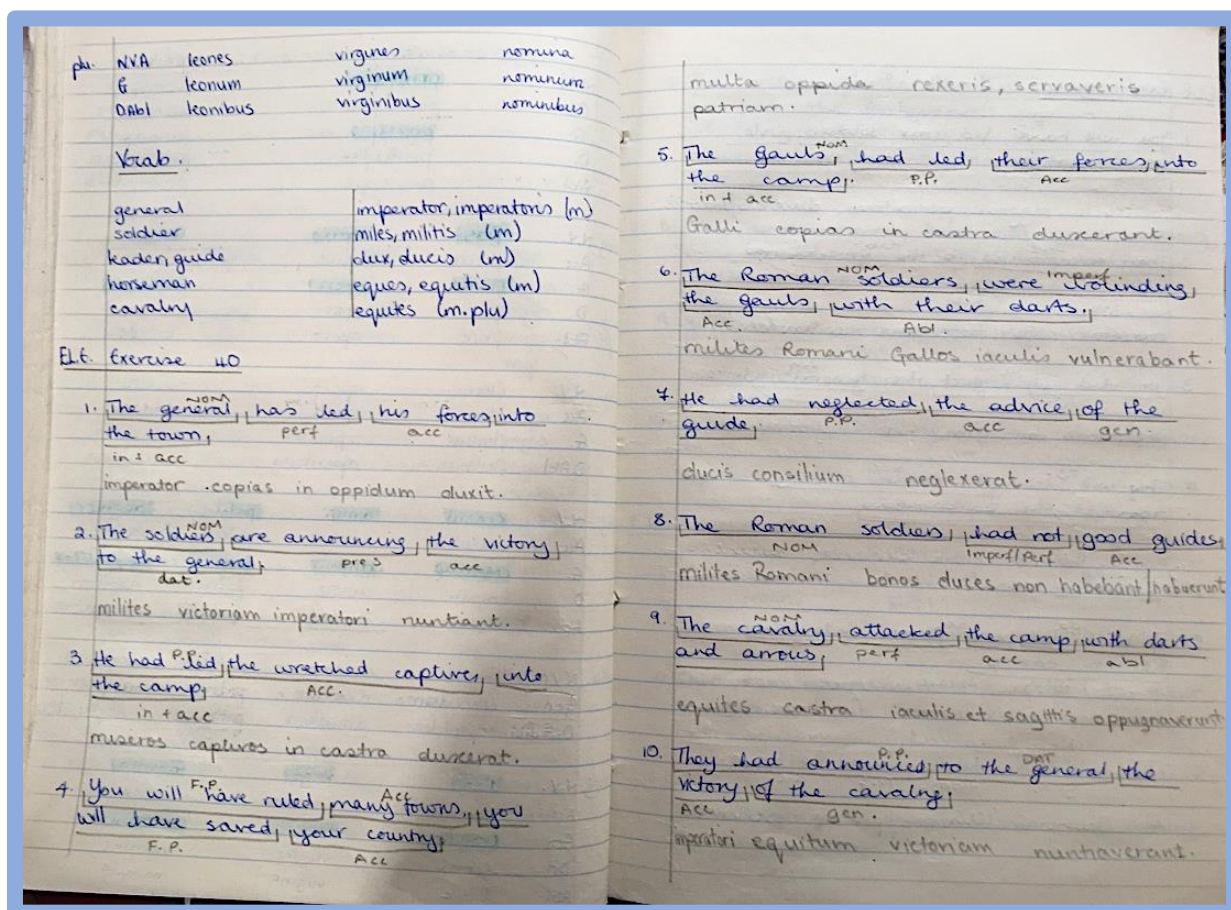 plu. NVA leones virgines nomina
G leonum virginum nominum
DAbl leonibus virginibus nominibus
Vocab.
general imperator, imperatoris (m)
soldier miles, militis (m)
leader, guide dux, ducis (m)
horseman eques, equitis (m)
cavalry equites (m. plu)
Exercise 40
NOM
1. The general, has led, his forces, into
the town, perf acc
in + acc
imperator copias in oppidum duxit.
NOM
2. The soldiers, are announcing, the victory,
to the general, pres acc
dat.
milites victoriam imperatori nuntiant.
P.P.
3 He had led, the wretched captives, into
the camp, Acc.
in + acc
miseros captivos in castra duxerat.
F.P. Acc
4. You will have ruled, many towns, you
will have saved, your country,
F.P. Acc
multa oppida rexeris, servaveris
patriam.
NOM
5. The Gauls, had led, their forces, into
the camp. P.P. Acc
in + acc
Galli copias in castra duxerant.
NOM Imperf
6. The Roman soldiers, were wounding,
the gauls, with their darts.
Acc. Abl.
milites Romani Gallos iaculis vulnerabant.
7. He had neglected, the advice, of the
guide, P.P. acc gen.
ducis consilium neglexerat.
8. The Roman soldiers, had not, good guides,
NOM Imperf/Perf Acc
milites Romani bonos duces non habebant/habuerunt
NOM
9. The cavalry, attacked, the camp, with darts
and arrows, perf acc abl
equites castra iaculis et sagittis oppugnaverunt
P.P. DAT
10. They had announced, to the general, the
victory, of the cavalry,
Acc gen.
imperatori equitum victoriam nuntiaverant.